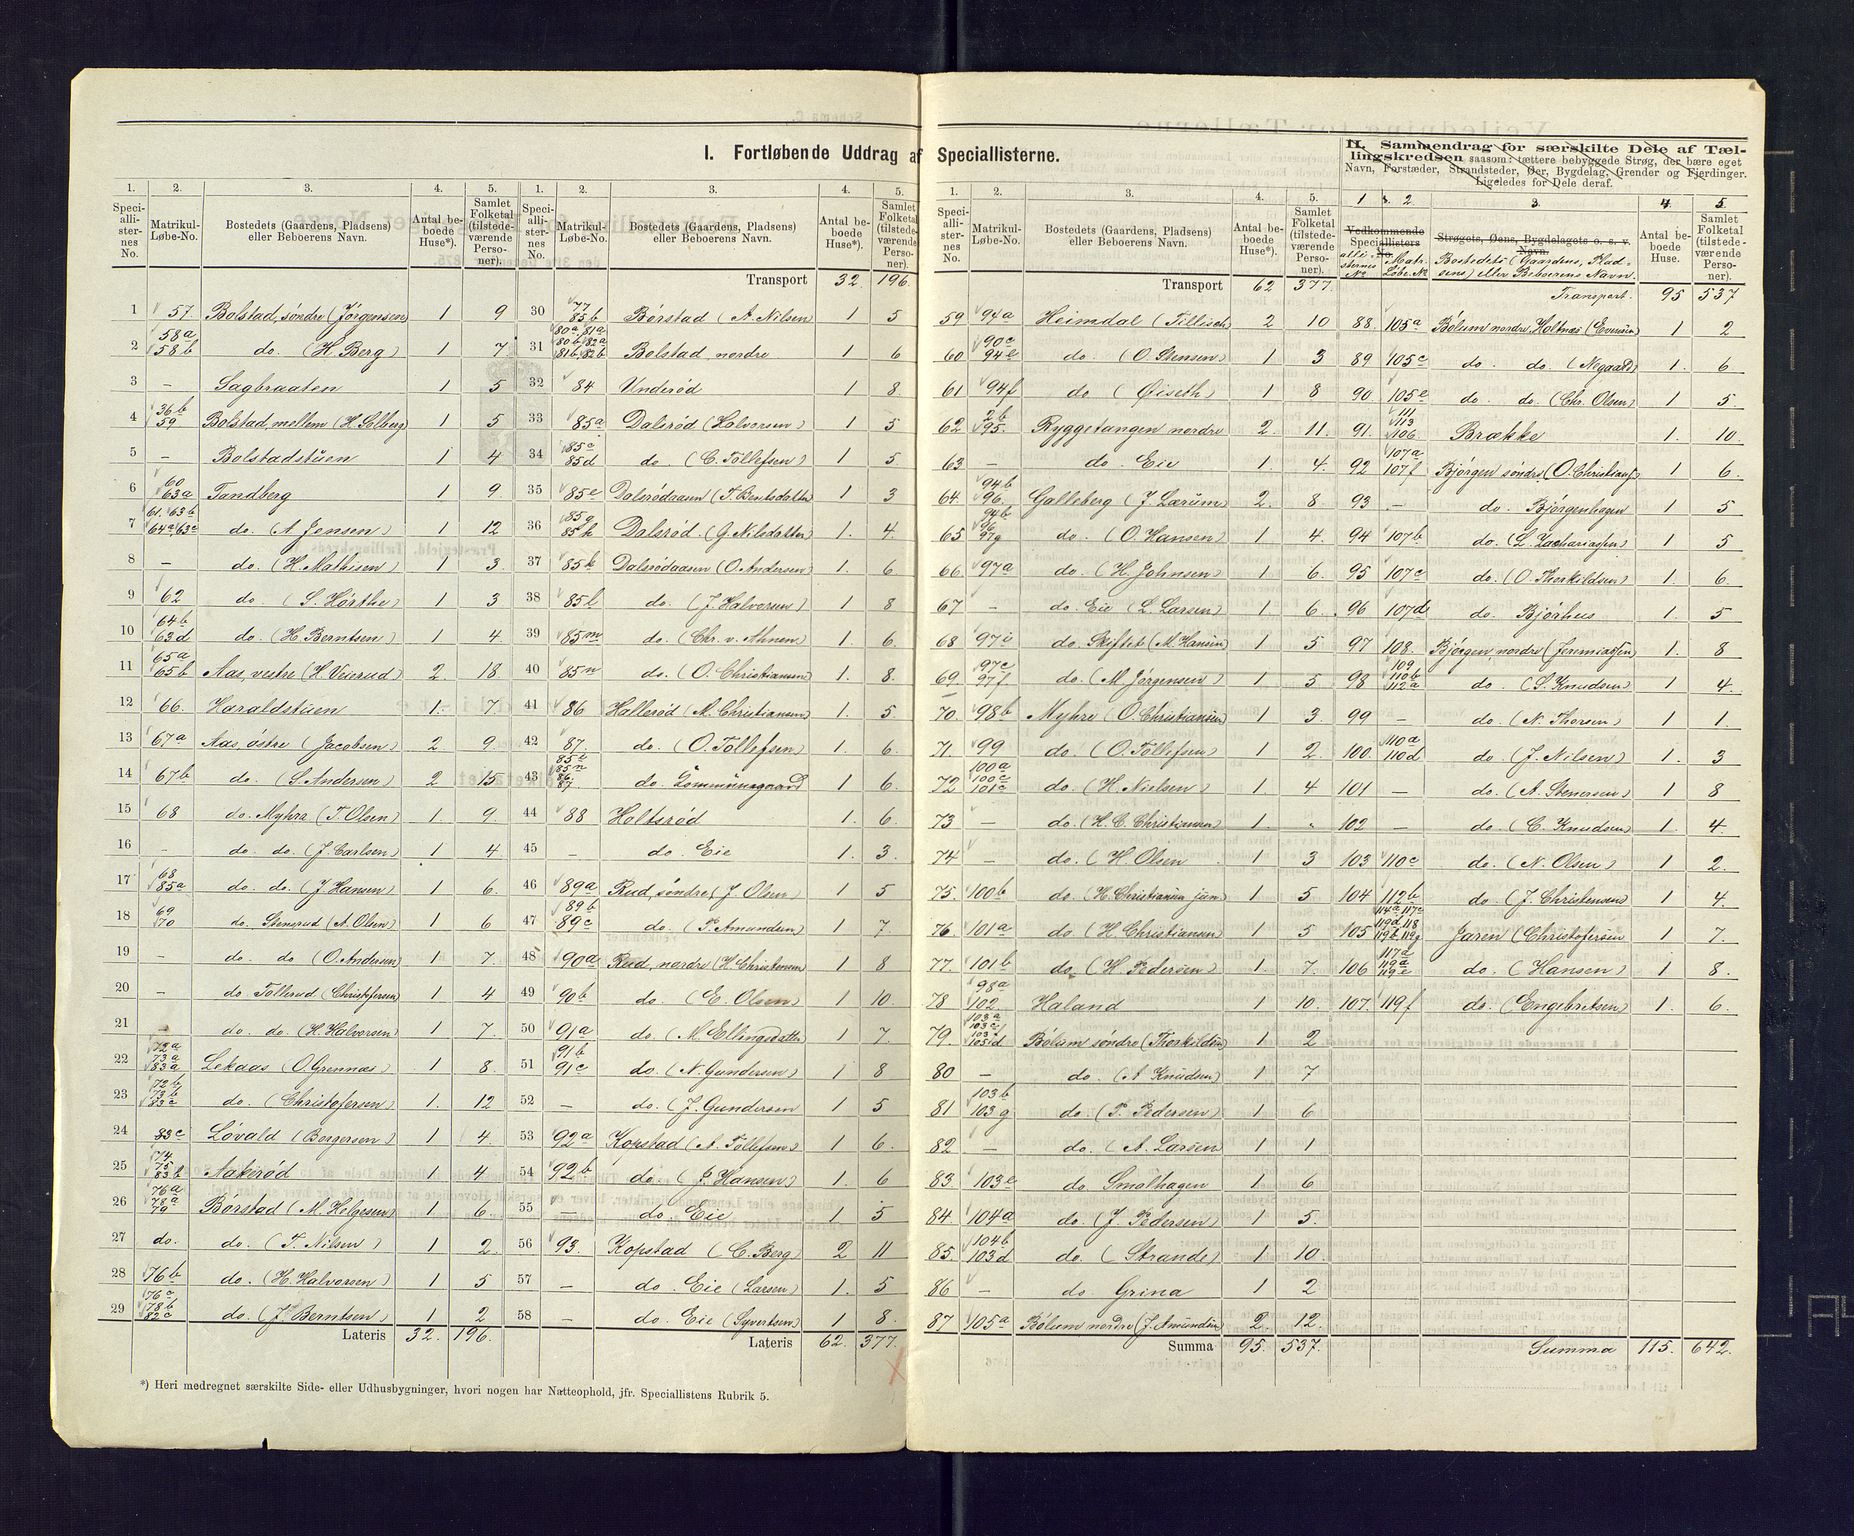 I. Fortløbende Uddrag af Speciallisterne.
1. 2. 3. 4. 5.
Speciallisternes No. Matrikul-Løbe-No. Bostedets (Gaardens, Pladsens) eller Beboerens Navn. Antal beboede Huse*). Samlet Folketal (tilstedeværende Personer).
1 57 Bolstad, søndre (Jørgensen) 1 9
2 58a 58b do. (H. Berg) 1 7
3 – Sagbraaten 1 5
4 36b 59 Bolstad, mellem (H. Solberg) 1 5
5 – Bolstadstuen 1 4
6 60 63a Tandberg 1 9
7 61, 63b 64a, 63c do. (A. Jensen) 1 12
8 – do. (H. Mathisen) 1 3
9 62 do (S. Hørthe) 1 3
10 64b 63d do. (H. Berntsen) 1 4.
11 65a 65b Aas, vestre (H. Veierud) 2 18
12 66. Haraldstuen 1. 7
13 67a Aas, østre (Jacobsen) 2 9.
14 67b do. (S. Andersen) 2 15
15 68 do. Myhra (T. Olsen) 1 9.
16 – do. do. (J. Carlsen) 1 4.
17 68 85a do. do. (J. Hansen) 1 6.
18 69 70 do. Stengrud (A. Olsen) 1 6
19 – do. do (O. Andersen) 1 7.
20 – do Tollerud (Christofersen) 1 4
21 – do. do. (H. Halvorsen) 1 7.
22 72a 73a 83a Lekaas (O. Grennæs) 1 8.
23 72b 73b do. (Christofersen) 1. 12
24 83c Løvald (Borgersen) 1 4.
25 74 75 83b Aakerød 1 4
26 76a 78a 79 Børstad (M. Helgesen) 1 6.
27 do. do. (T. Nilsen) 1 2.
28 76b do. (H. Halvorsen) 1 5
29 76c 78b 82c do. (J. Berntsen) 1 2
Lateris 32. 196.
*) Heri medregnet særskilte Side- eller Udhusbygninger, hvori nogen har Natteophold, jfr. Speciallistens Rubrik 5.
1. 2. 3. 4. 5.
Speciallisternes No. Matrikul-Løbe-No. Bostedets (Gaardens, Pladsens) eller Beboerens Navn. Antal beboede Huse*). Samlet Folketal (tilstedeværende Personer).
Transport 32. 196.
30 77 85b Børstad (A. Nilsen) 1 5
31 80a, 81a 80b, 82a 81b, 82b Bolstad, nordre 1 6
32 84 Underød 1 8.
33 85a Dalsrød (Halvorsen) 1 5
34 85c 85d do. (C. Tollefsen) 1 5.
35 85e Dalsrødaasen (T. Berntsdatter) 1 3
36 85g 85h Dalsrød (G. Nilsdatter) 1. 4.
37 85k Dalsrødaasen (O. Andersen) 1 6
38 85l do. (J. Halvorsen) 1 8
39 85m do. (Chr. v. Ahnen) 1. 6
40 85n do. (O. Christiansen) 1. 8.
41 86 Hallerød (A. Christiansen) 1. 5
42 87. do. (O. Tollefsen) 1. 6.
43 85e 85n 86. 87. do. Kommunegaard 1 6.
44 88 Holtsrød 1. 6.
45 – do. Eie 1. 3.
46 89a Rud, søndre (J. Olsen) 1 5
47 89b 89c do. (P. Amundsen) 1 7
48 90a Rud, nordre (H. Christensen) 1 8
49 90b do. (E. Olsen) 1 10.
50 91a do. (M. Ellingsdatter) 1 7.
51 91b 91c do. (N. Gundersen) 1 8
52 – do. (J. Gundersen 1 5
53 92a Kopstad (A. Tollefsen) 1 6.
54 92b do. (P. Hansen) 1 6
55 – do. Eie 1 5
56 93. Kopstad (C. Berg) 2 11
57 – do. Eie (Larsen) 1. 5
58 – do. Eie (Syvertsen) 1 8.
Lateris 62. 377.
1. 2. 3. 4. 5.
Speciallisternes No. Matrikul-Løbe-No. Bostedets (Gaardens, Pladsens) eller Beboerens Navn. Antal beboede Huse*). Samlet Folketal (tilstedeværende Personer).
Transport 62 377.
59 94a Heimdal (Tillisch) 2 10
60 90c 94e do. (O. Stensen) 1 3
61 94f do (Øiseth) 1 8
62 2b 95. Ryggetangen nordre 2. 11.
63 – do. Eie 1. 4.
64. 94b 96. Galleberg (J. Lærum) 2. 8
65 94b 96 97g do. (O. Hansen) 1 4.
66 97a do. (H. Johnsen) 1 6.
67 – do. Eie (L. Larsen) 1 6
68 97i do. Skiftet (M. Hansen) 1 5
69. 97e 97f do. (M. Jørgensen) 1 5
70. 98b Myhre (O. Christiansen) 1 3
71. 99 do. (O. Tollefsen) 1 2
72 100a 100c 101c do. (H. Nielsen) 1. 4
73 – do. (H. C. Christiansen) 1. "
74 – do. (H. Olsen 1 3
75. 100b do. (H. Christiansen jun) 1 5
76. 101a do. (H. Christiansen) 1 5
77. 101b do. (H. Pedersen) 1. 7
78 98a 102 Haland 1 10.
79. 103a 103c 103f 105d Bølum søndre (Thorkildsen) 1 2
80 – do. (A. Knudsen) 1 7
81 103b 103g do. (P. Pedersen) 1 6
82 – do. (A. Larsen 1 1
83 103e do. Smølhagen 1 6
84 104a do. (J. Pedersen) 1 5.
85. 104b 103d do. (Strande) 1 10.
86 – do. Grina 1 2
87 105a Bølum nordre (J. Amundsen) 2. 12.
Summa 95. 537.
II. Sammendrag for særskilte Dele af Tællingskredsen saasom: tættere bebyggede Strøg, der bære eget Navn, Forstæder, Strandsteder, Øer, Bygdelag, Grender og Fjerdinger. Ligeledes for Dele deraf.
1 2. 3. 4. 5.
Vedkommende Speciallisters No. Strøgets, Øens, Bygdelagets o. s. v. Navn. Antal beboede Huse. Samlet Folketal (tilstedeværende Personer).
Matr. Løbe No Bostedets (Gaardens, Pladsens) eller Beboerens Navn.
Transport. 95 537
88. 105a Bølum nordre, Holtnæs (Evensen) 1 2
89 105c do. do. (Negaard) 1. 6
90. 105e do. do. (Chr. Olsen) 1. 5
91. 111 113 106. Brække 1. 10
92 107a 107f Bjørgen søndre (O. Christians) 1 6.
93 – do. Bjørgenhagen 1 5
94 107b do. (L. Zachariassen) 1 5
95 107c do. (O. Thorkildsen) 1. 6.
96 107d do. Bjørhus 1. 5
97 108. Bjørgen, nordre (Jeremiassen) 1. 8
98 109 110b 112a do. (S. Knudsen) 1 4.
99 – do. (N. Thorsen) 1 1
100. 110a 110d do. (J. Nilsen) 1. 3
101 – do. (A. Stensen) 1 8
102 – do. (C. Knudsen) 1. 4.
103 110c do. (N. Olsen) 1 2.
104 112b do. (J. Christensen) 1 4.
105 114a, 117c 119d, 118 119b, 119g Jaren (Christofersen 1 7.
106 117a 119a 119e do. (Hansen) 1 8.
107. 119f do. (Engebretsen) 1. 6
Summa 115. 642.